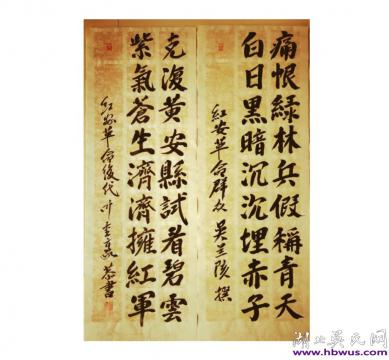 痛恨綠林兵假稱青天
白日黑暗沉沉埋赤子
红安革命群众吴兰陔撰
克復黄安縣試看碧雲
紫氣蒼生濟濟擁紅軍
红安革命後代叶
恭書
湖北吴氏网
www.hbwus.com